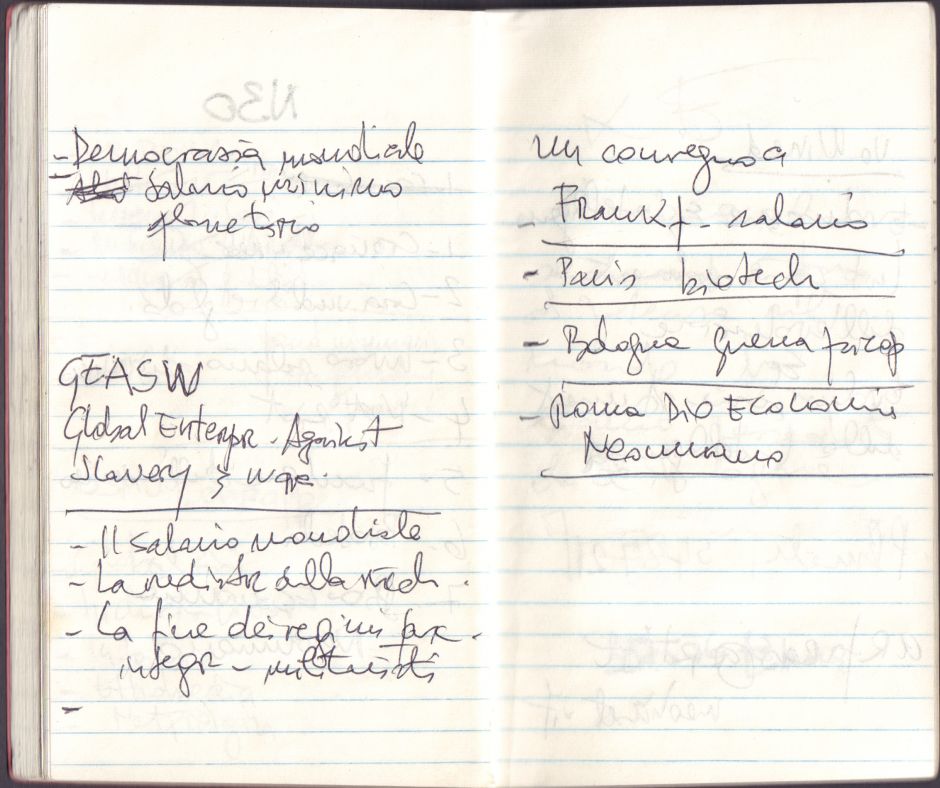 - Democrazia mondiale
- salario minimo
planetario
GEASW
Global Enterpr. Against
Slavery & wage
- Il salario mondiale
- La redistr della
- La fine dei regimi
integr - militaristi
-
Un convegno a
- Frankf - salario
- Paris biotech
- Bologna guerra
- Roma Dio Economia
Neoumano